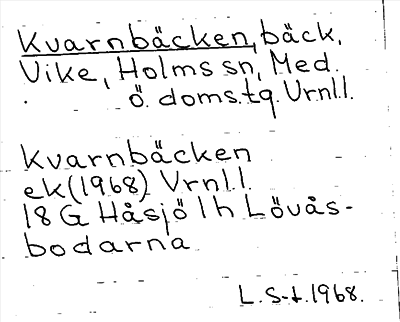 Kvarnbäcken, bäck,
Vike, Holms sn, Med.
Ö. doms.tg. Vrnl.l.
Kvarnbäcken
ek(1968) Vrnl.l.
18 G Håsjö 1h Lövås-
bodarna
L. S-t. 1968.